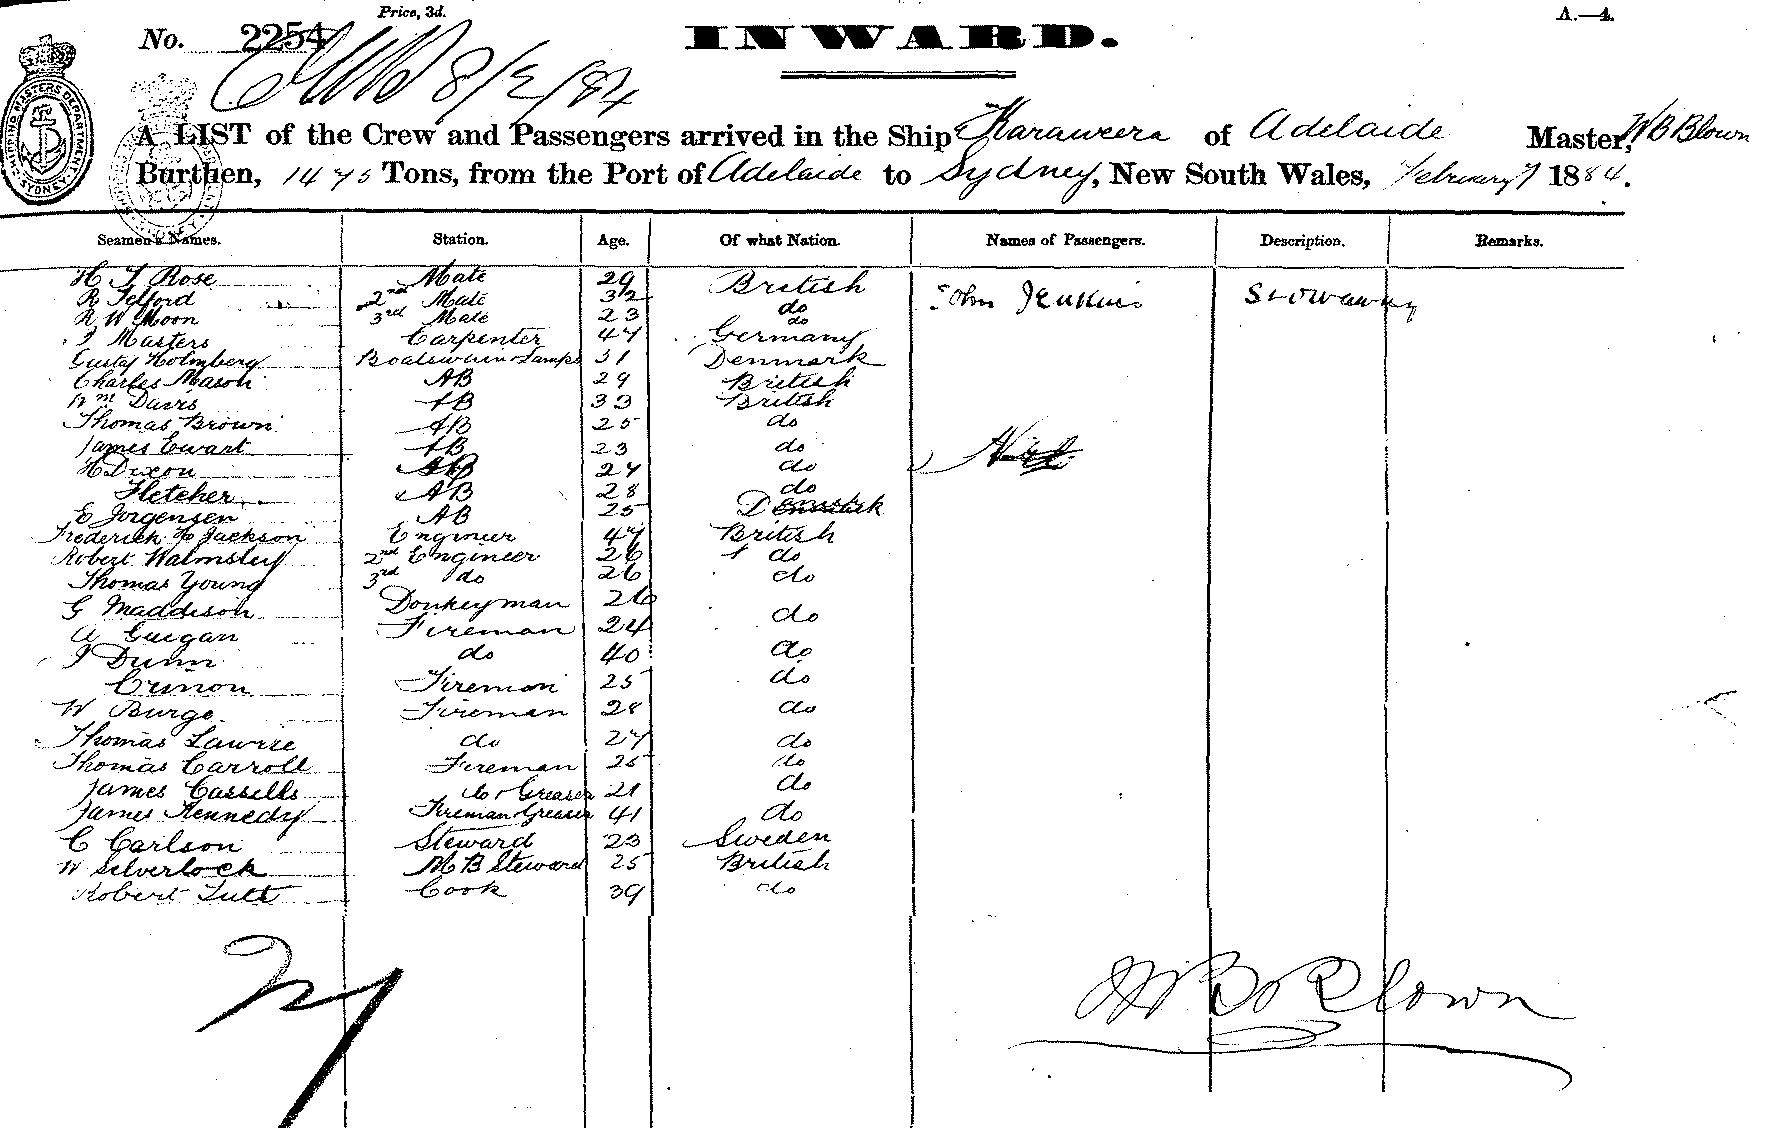 Price, 3d.
A.—4.
No. 2254
INWARD.
8/2/84
A LIST of the Crew and Passengers arrived in the Ship Karaweera of Adelaide Master, W B Blown
Burthen, 1475 Tons, from the Port of Adelaide to Sydney, New South Wales, February 1884.
Seamen's Names. Station. Age. Of what Nation. Names of Passengers. Description. Remarks.
H J Rose Mate 29 British John Jenkins Stowaway
R Telford 2nd Mate 32 do
R W Moon 3rd Mate 23 do
J Masters Carpenter 47 Germany
Gustaf Holmberg Boatswain & Lamps 31 Denmark
Charles Mason AB 29 British
Wm Davis AB 33 British
Thomas Brown AB 25 do
James Ewart AB 23 do
H Dixon AB 27 do
Fletcher AB 28 do
E Jorgensen AB 25 Denmark
Frederick Jackson Engineer 47 British
Robert Walmsley 2nd Engineer 26 do
Thomas Young 3rd do 26 do
G Maddison Donkeyman 26 do
A Guigan Fireman 24
J Dunn do 40 do
Crinon Fireman 25 do
W Burge Fireman 28 do
Thomas Lawrie do 27 do
Thomas Carroll Fireman 25 do
James Cassells do & Greaser 21 do
James Kennedy Fireman Greaser 41 do
C Carlson Steward 23 Sweden
W Silverlock M B Steward 25 British
Robert Tutt Cook 39 do
27
W B Blown